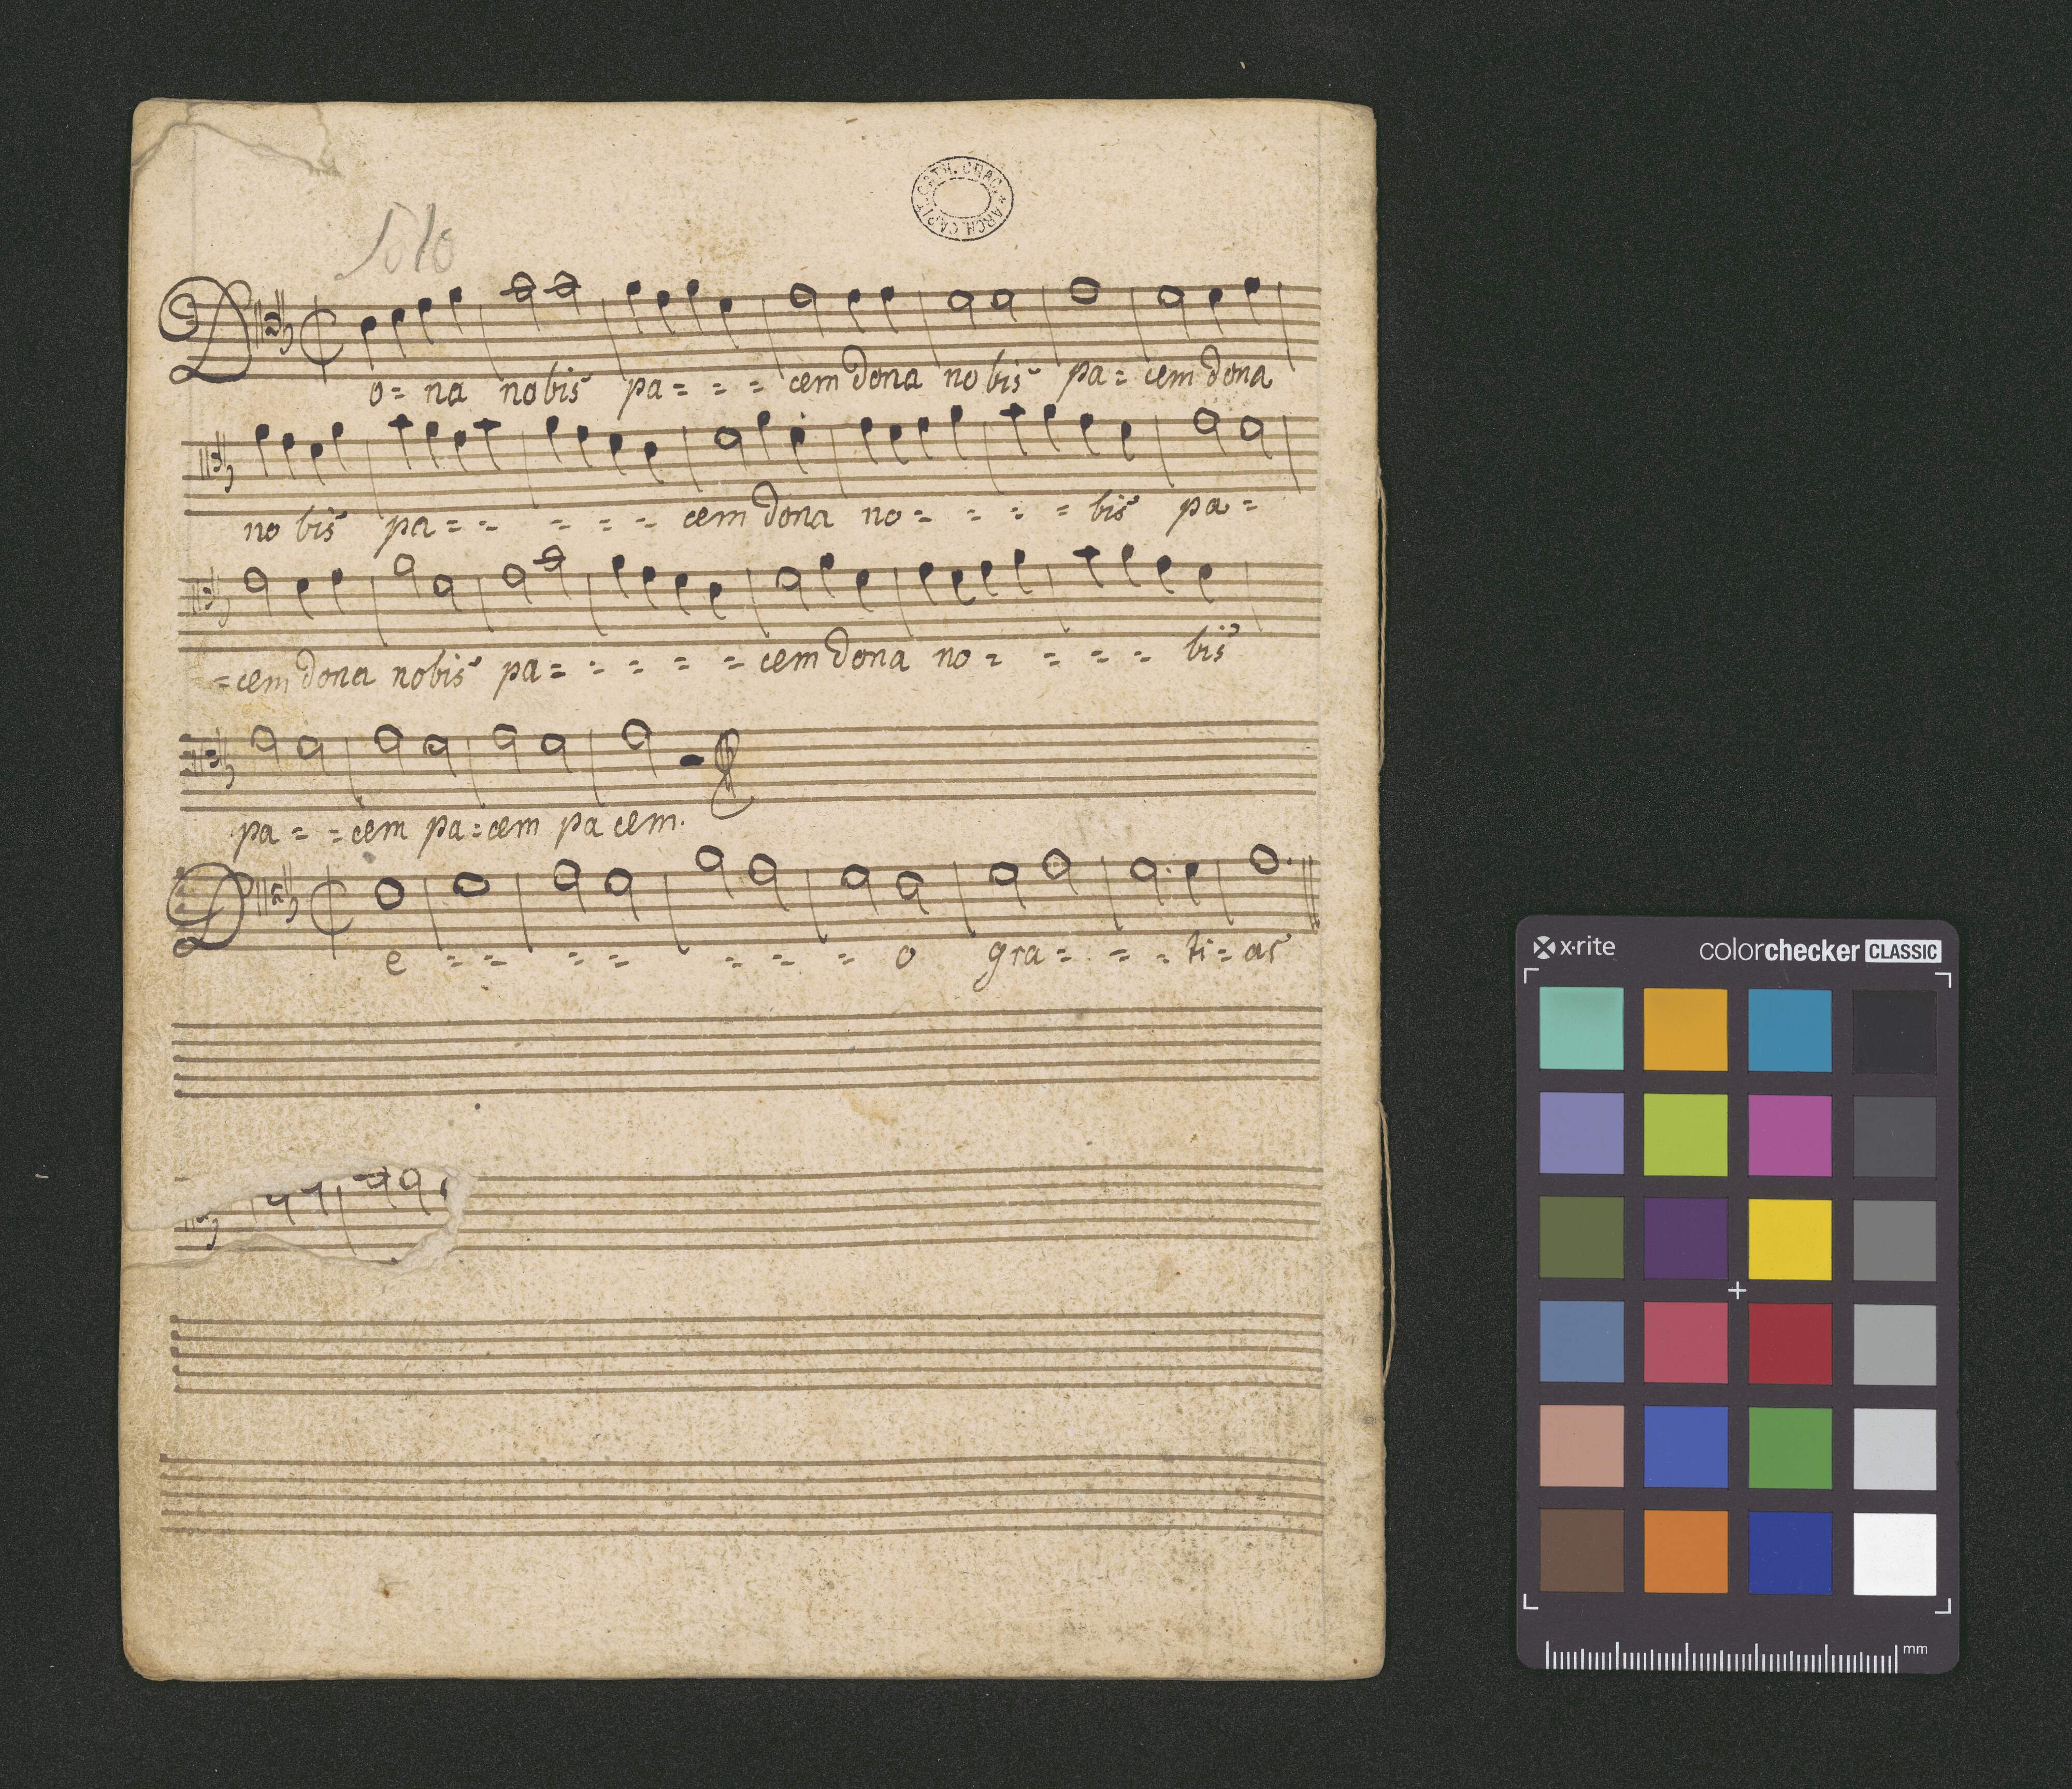 ARCH. CAPIT. CATH. CRAC. *
Solo
Do= na nobis pa= = = cem dona nobis pa= cem dona
nobis pa= = = = = cem dona no= = = = bis pa=
=cem dona nobis pa= = = = = cem dona no= = = = bis
pa= =cem pa=cem pa cem.
De = = = = = = = o gra= = =ti=as
x·rite colorchecker CLASSIC
mm